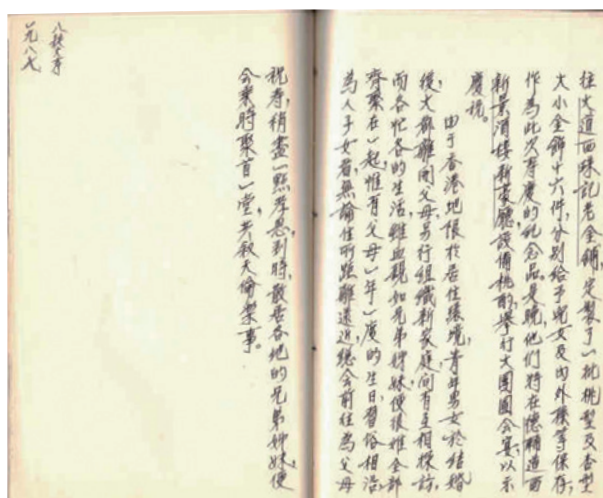 往大道西珠記老金鋪，定製了一批桃型及杏型
大小金飾十六件，分別給予兒女及內外孫等保存，
作為此次壽慶的紀念品，是晚他們將在德輔道西
新景酒樓新豪廳設備桃酌，舉行大團圓會宴，以示
慶祝。
由于香港地限於居住環境，青年男女於結婚
後大都離開父母，另行組織新家庭，間有互相探訪，
而各忙各的生活，雖血親如兄弟姊妹便很難全部
齊聚在一起，惟有父母一年一度的生日，習俗相沿，
為人子女者，無論住所距離遠近，總會前往為父母
祝壽，稍盡一點孝思，到時散居各地的兄弟姊妹便
會乘時聚首一堂，共敘天倫樂事。
八秩大事
元八七